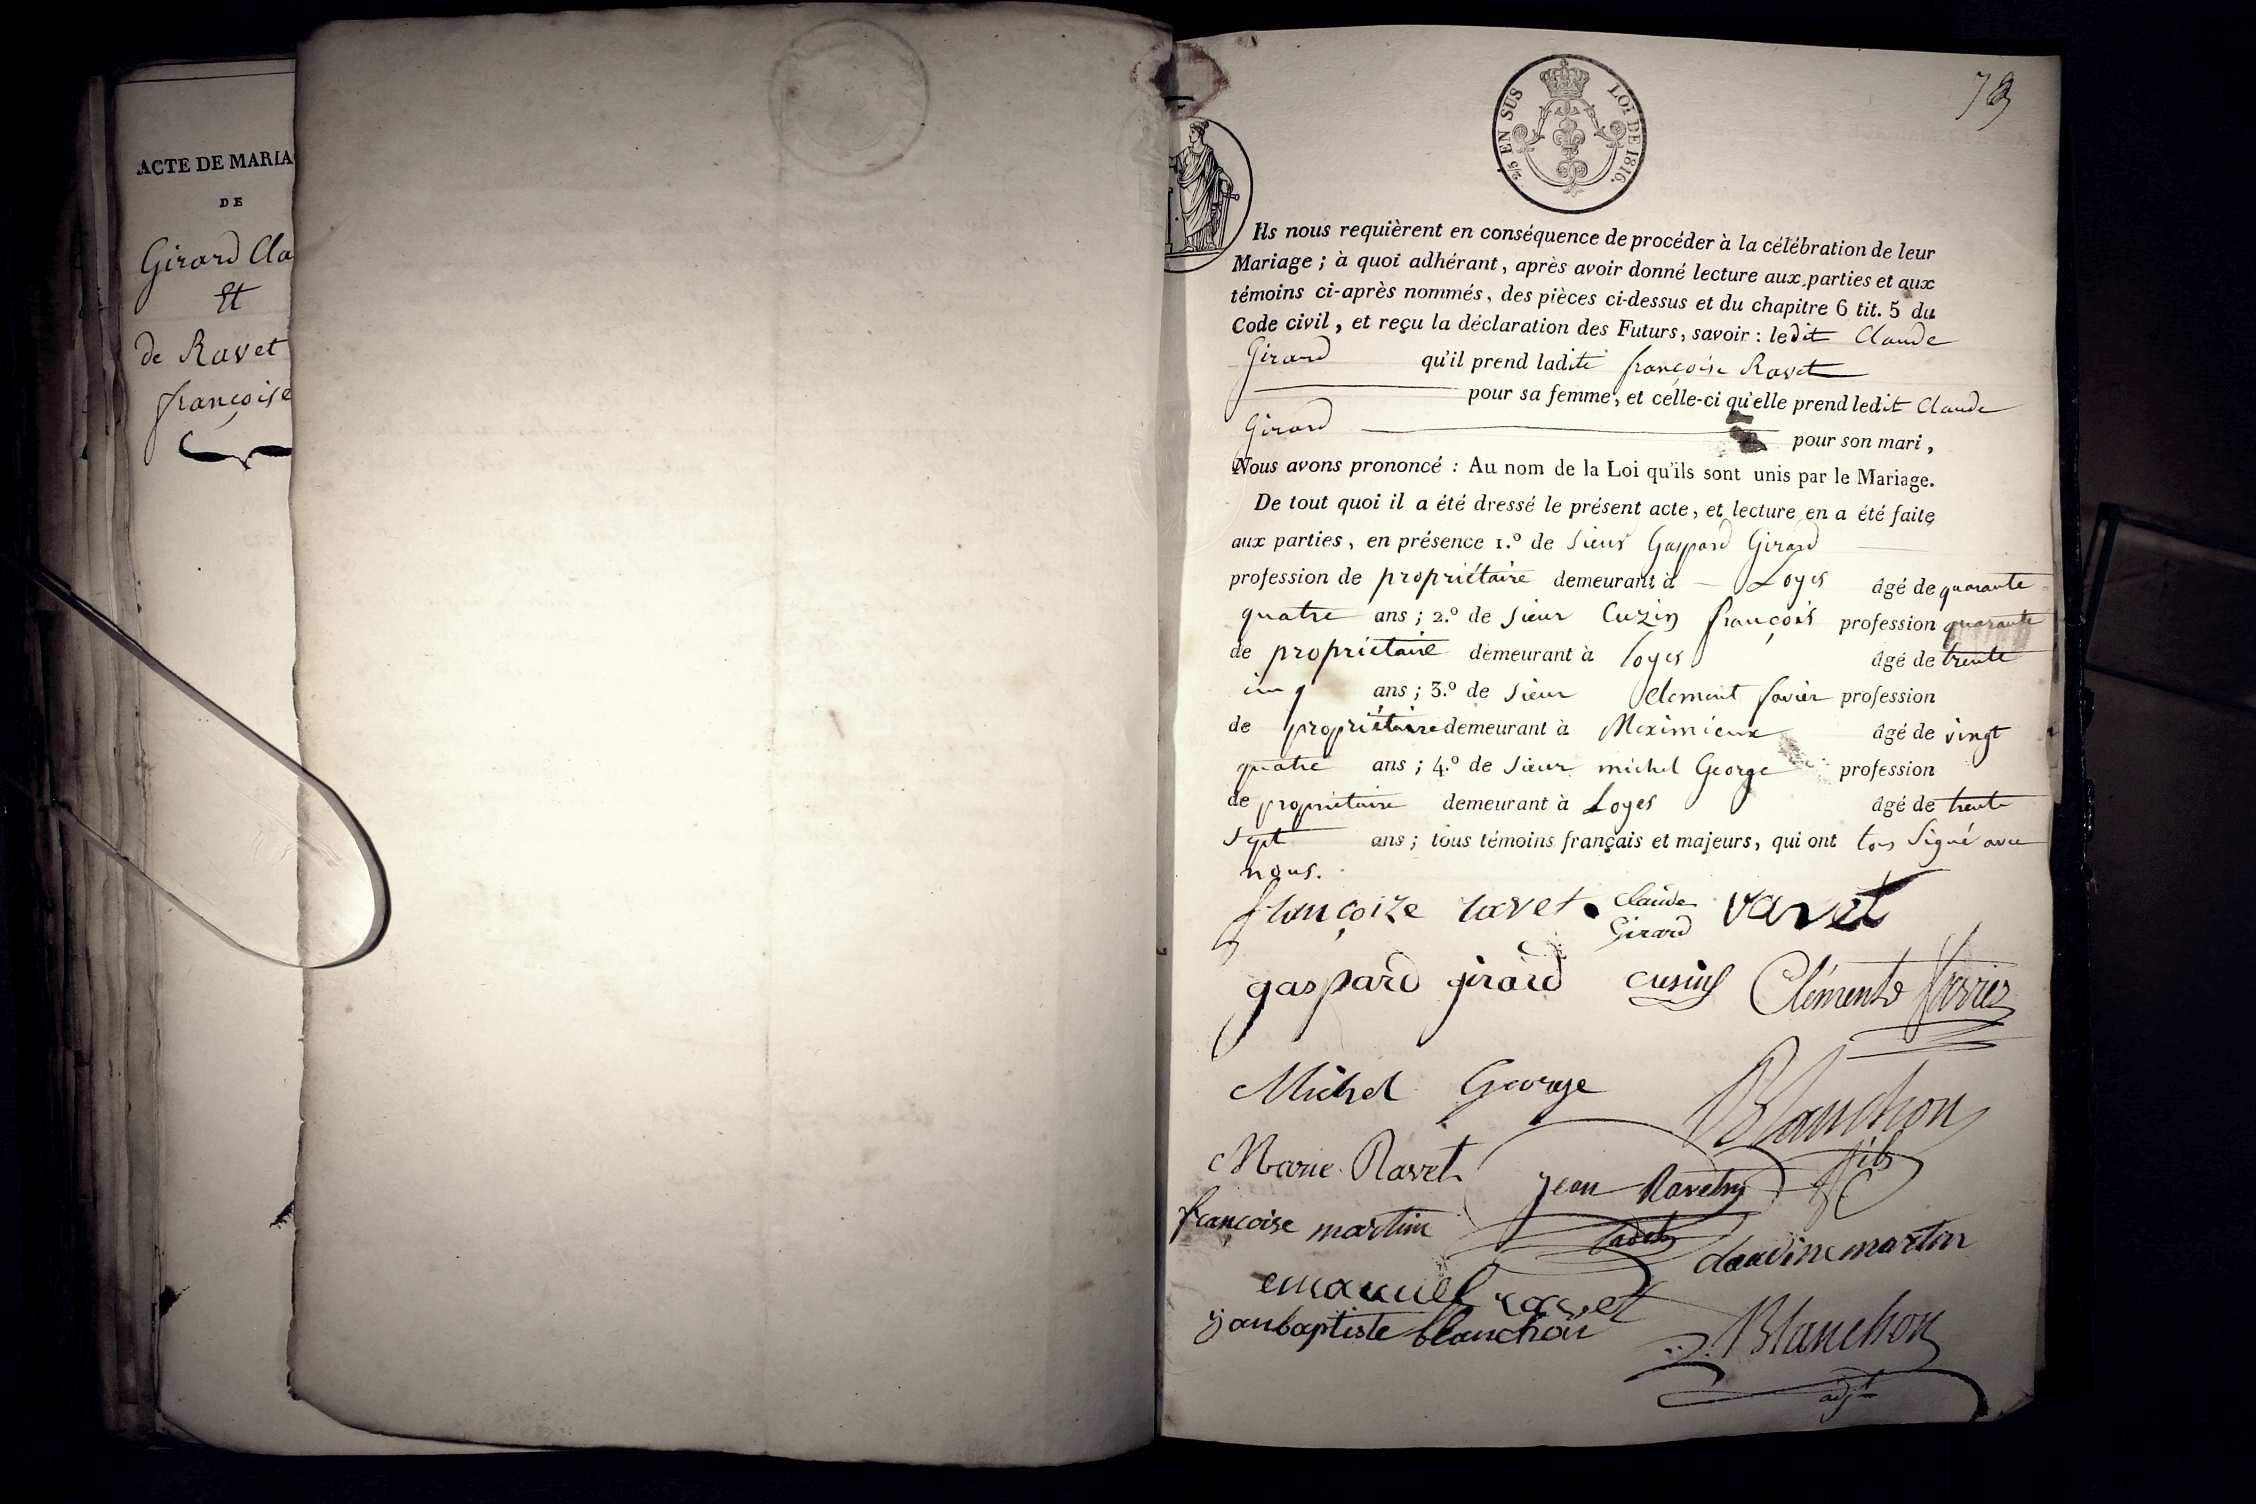 ACTE DE MARIA
DE
Girard Cla
Et
de Ravet
françoise
2/5 EN SUS LOI DE 1816.
Ils nous requièrent en conséquence de procéder à la célébration de leur
Mariage ; à quoi adhérant, après avoir donné lecture aux parties et aux
témoins ci-après nommés, des pièces ci-dessus et du chapitre 6 tit. 5 du
Code civil, et reçu la déclaration des Futurs, savoir : ledit Claude
Girard qu'il prend ladite françoise Ravet
pour sa femme, et celle-ci qu'elle prend ledit Claude
Girard pour son mari,
Nous avons prononcé : Au nom de la Loi qu'ils sont unis par le Mariage.
De tout quoi il a été dressé le présent acte, et lecture en a été faite
aux parties, en présence 1.º de sieur Gaspard Girard
profession de propriétaire demeurant à Loyes âgé de quarante
quatre ans ; 2.º de sieur Cuzin françois profession quarante
de propriétaire demeurant à loyes âgé de trente
cinq ans ; 3.º de sieur Clement favier profession
de propriétaire demeurant à Meximieux âgé de vingt
quatre ans ; 4.º de sieur michel George profession
de propriétaire demeurant à Loyes âgé de trente
sept ans ; tous témoins français et majeurs, qui ont tous signé avec
nous.
françoize ravet claude Girard ravet
gaspard girard cusin Clémente favier
Michel George Blanchon
fils
Marie Ravet jean Ravet
cadet
françoise martin claudine martin
emanuel ravet
janbaptiste blanchon Blanchon
adjt